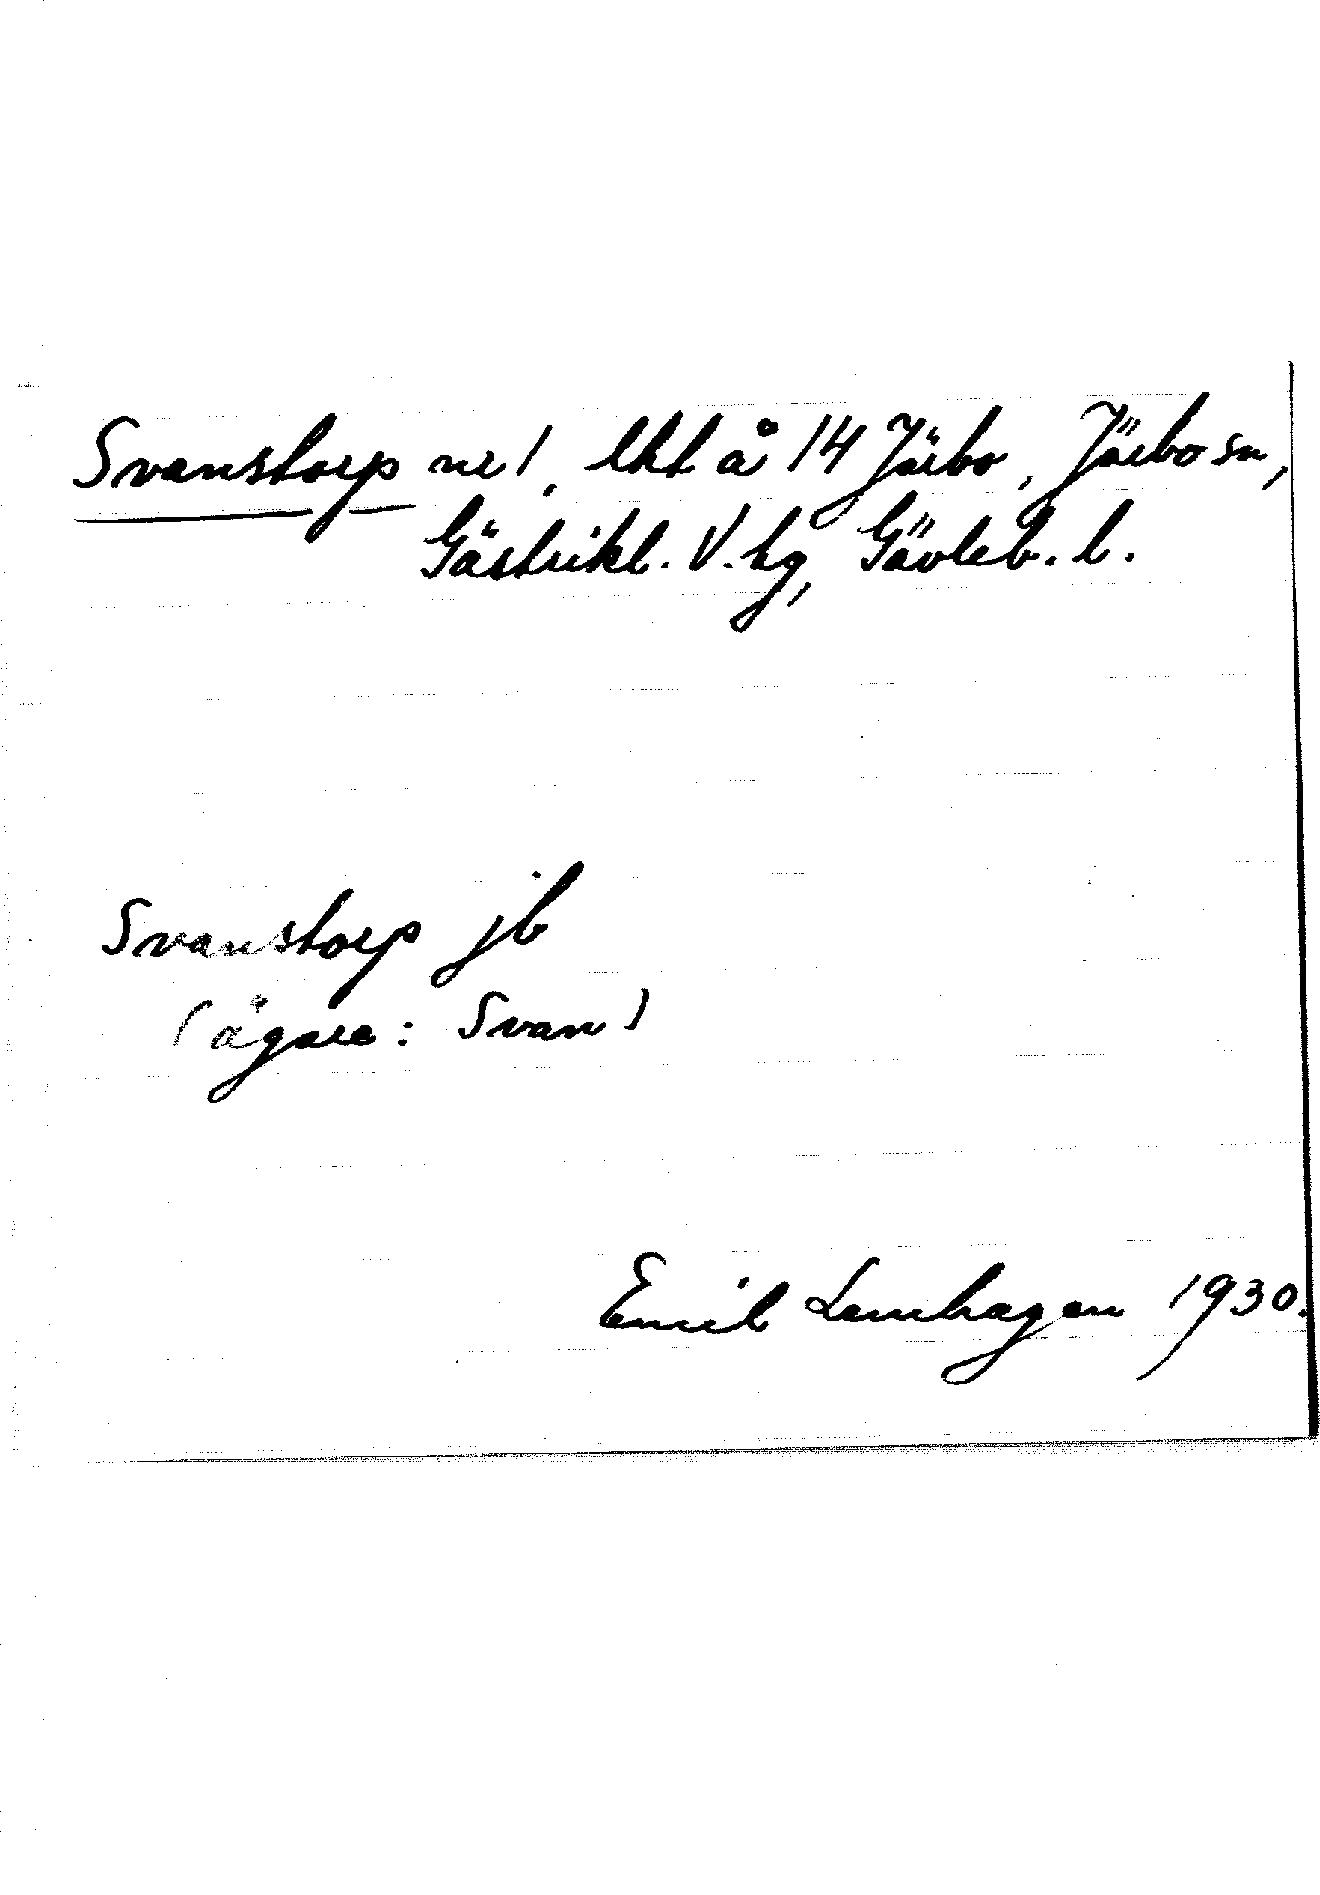 Svanstorp nr 1, lht å 14 Järbo, Järbo sn,
Gästrikl. V. tg, Gävleb. l.
Svanstorp jb
(ägare: Svan)
Emil Lamhagen 1930.